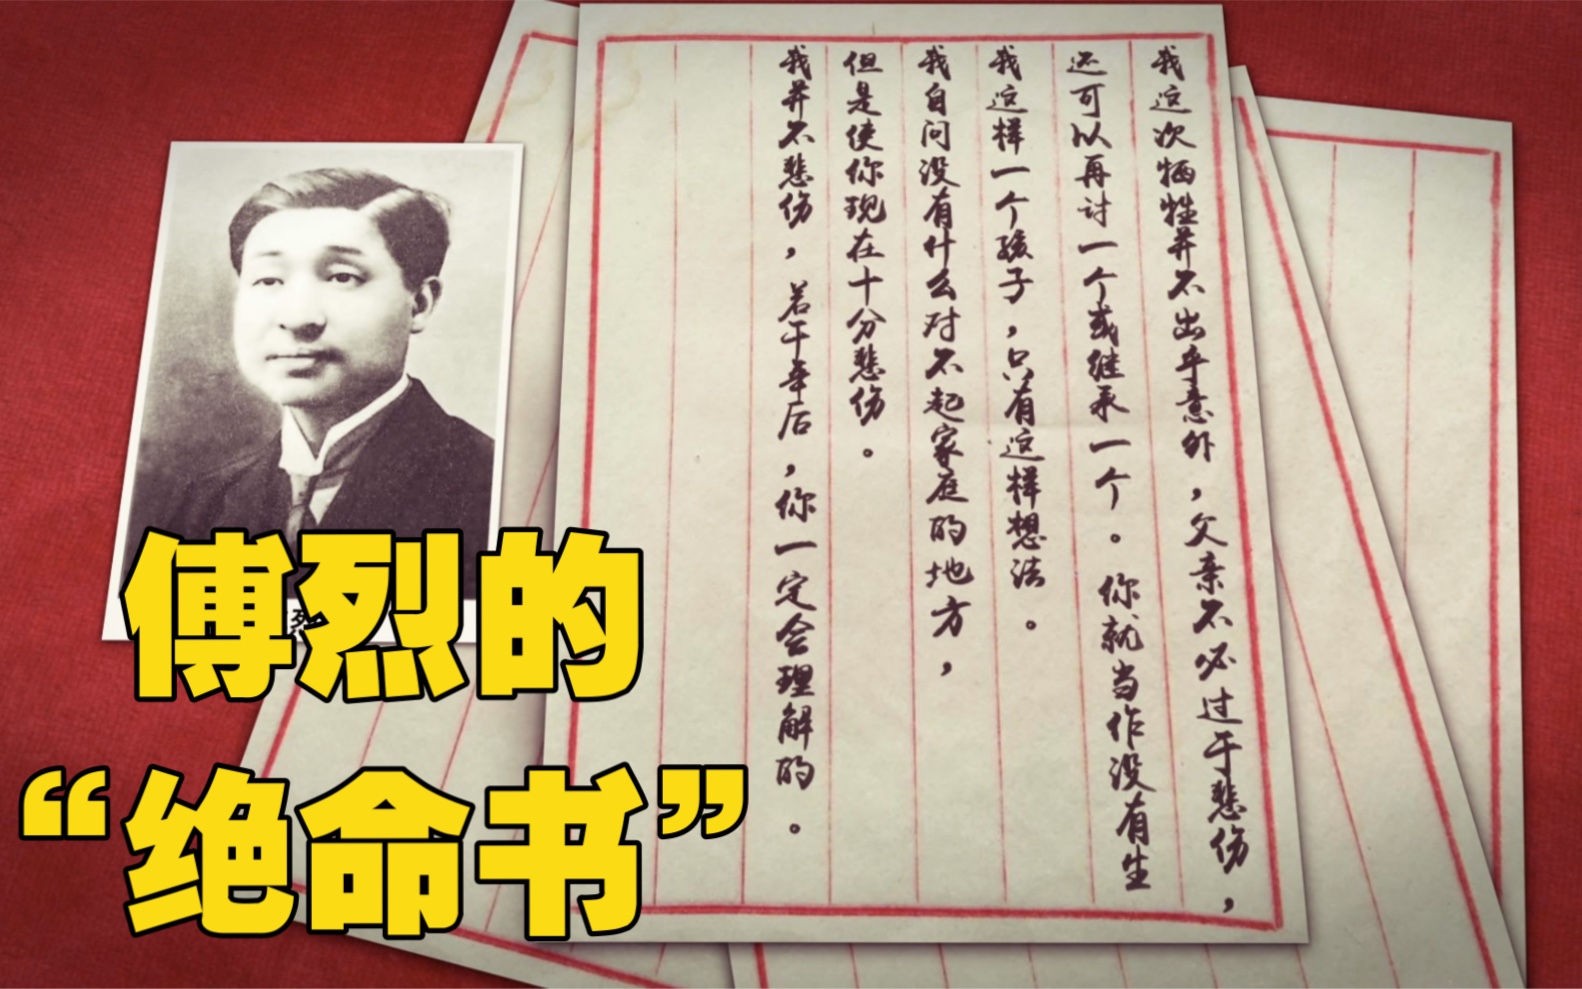 我这次牺牲并不出乎意外，父亲不必过于悲伤，
还可以再讨一个或继承一个。你就当作没有生
我这样一个孩子，只有这样想法。
我自问没有什么对不起家庭的地方，
但是使你现在十分悲伤。
我并不悲伤，若干年后，你一定会理解的。
傅烈的
“绝命书”